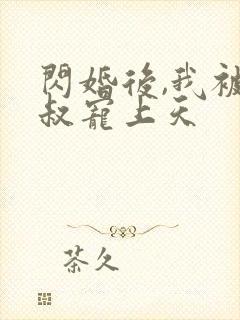 閃婚後,我被
叔寵上天
茶久